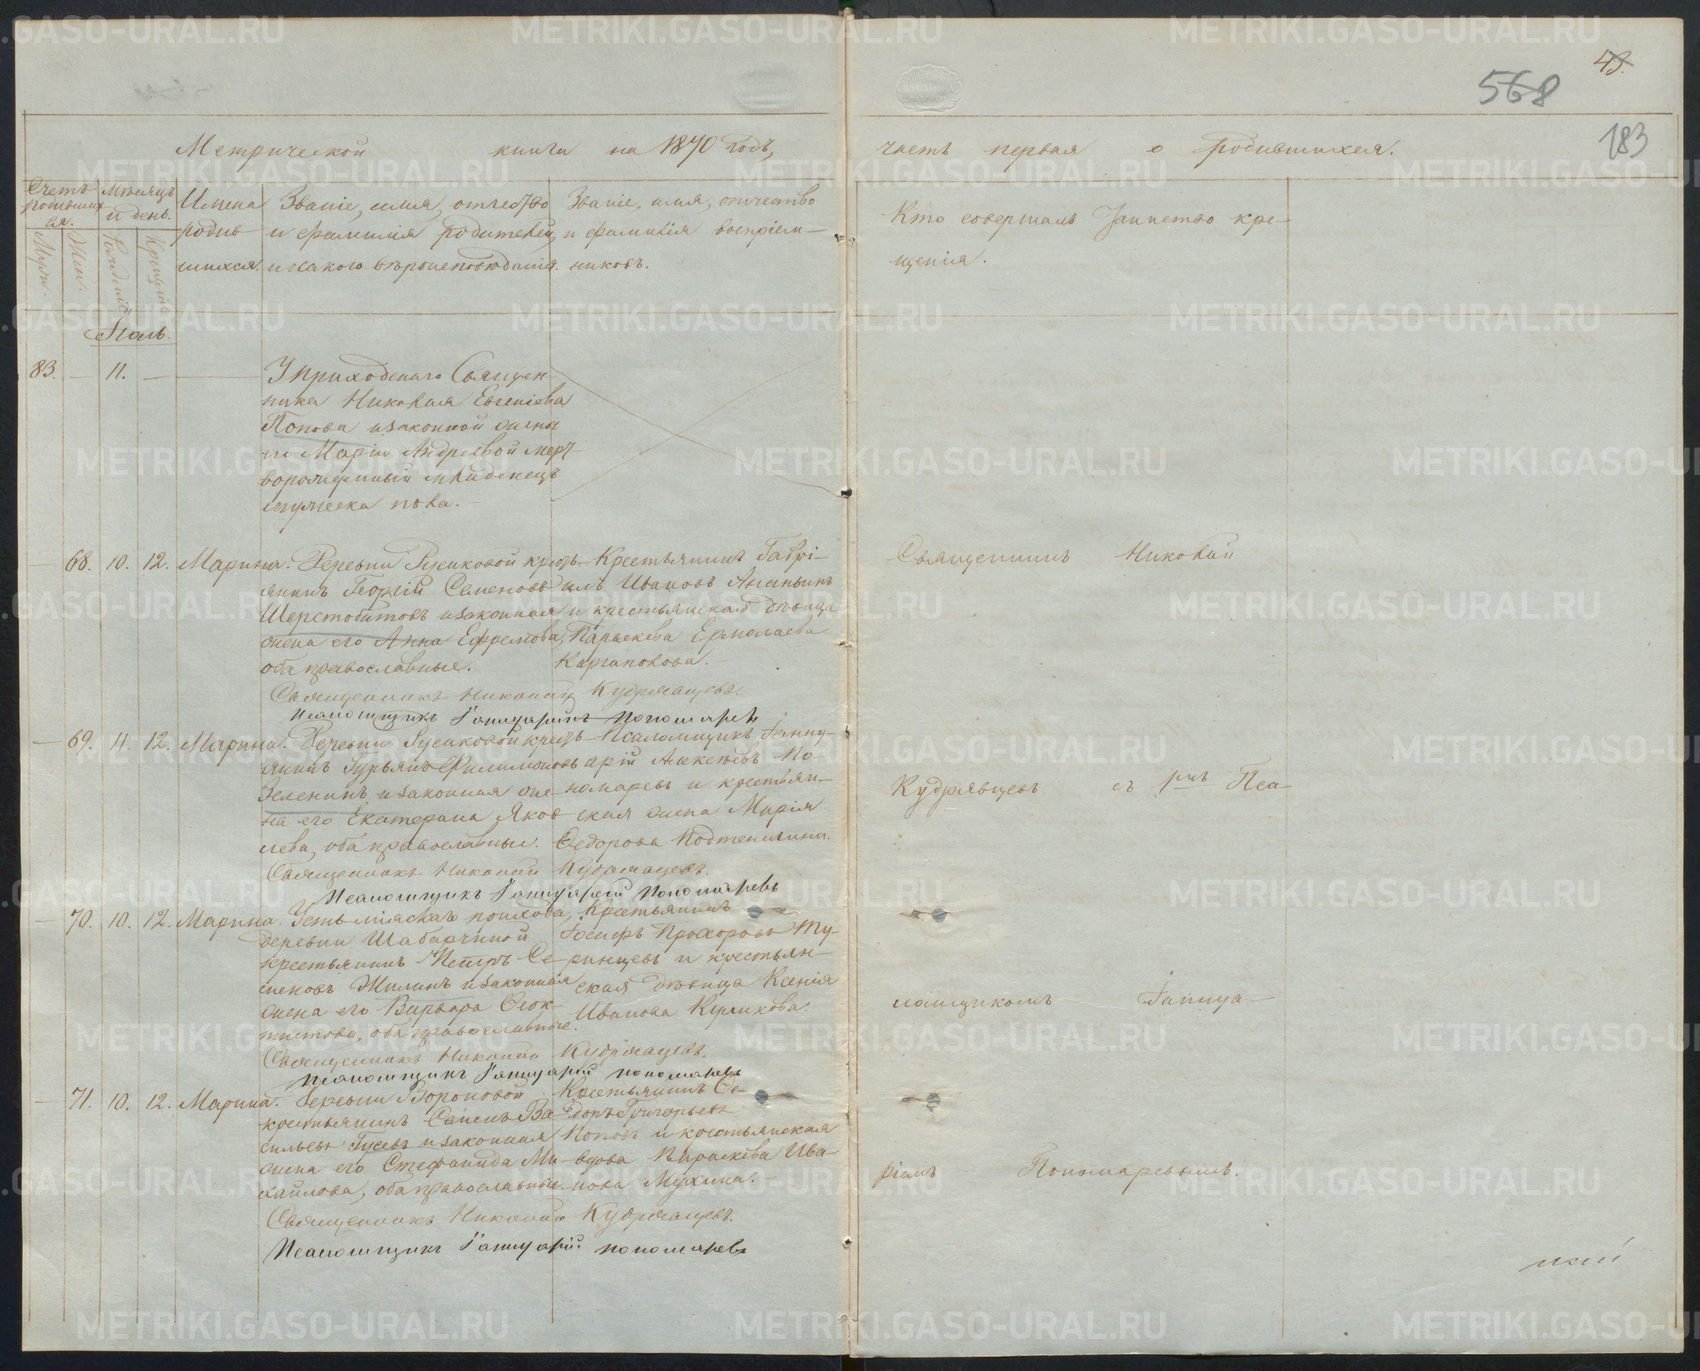 43.
568
183
Метрической книги на 1870 годъ,
часть первая о родившихся.
Счетъ родившихся.
Мужн.
Жен.
Мѣсяцъ и день.
Рожденія
Крещенія
Имена родившихся.
Званіе, имя, отчество и фамилія родителей, и какого вѣроисповѣданія.
Званіе, имя, отчество и фамилія воспріемниковъ.
Кто совершалъ Таинство крещенія.
Іюль.
83. 11.
У приходскаго Священ-
ника Николая Евгеніева
Попова и законной жены
его Маріи Андреевой мерт-
ворожденный младенецъ
мужеска пола.
68. 10. 12. Марина.
Деревни Русаковой кресть-
янинъ Георгій Семеновъ
Шерстобитовъ и законная
жена его Анна Ефремова,
оба православные.
Крестьянинъ Гаврі-
илъ Ивановъ Ананьинъ
и крестьянская дѣвица
Параскева Ермолаева
Каргаполова.
Священникъ Николай Кудрявцевъ.
Псаломщикъ Іаннуарій Пономаревъ
69. 11. 12. Марина.
Деревни Русаковой кресть-
янинъ Гурьянъ Филимоновъ
Зеленинъ и законная же-
на его Екатерина Яков-
лева, оба православные.
Псаломщикъ Іанну-
арій Алексѣевъ По-
номаревъ и крестьян-
ская жена Марія
Ѳедорова Подтепина.
Священникъ Николай Кудрявцевъ.
Псаломщикъ Іаннуарій Пономаревъ
70. 10. 12. Марина.
Усть-міяскаго прихода,
деревни Шабарчиной
крестьянинъ Петръ Се-
меновъ Жилинъ и законная
жена его Варвара Ѳеок-
тистова, оба православные.
Крестьянинъ
Іосифъ Прохоровъ Ту-
ринцевъ и крестьян-
ская дѣвица Ксенія
Иванова Куликова.
Священникъ Николай Кудрявцевъ.
Псаломщикъ Іаннуарій Пономаревъ
71. 10. 12. Марина.
Деревни Вороновой
крестьянинъ Ва-
сильевъ Гусевъ и законная
жена его Стефанида Ми-
хайлова, оба православные.
Крестьянинъ
Григорьевъ
Поповъ и крестьянская
вдова Параскева Ива-
нова Мухина.
Священникъ Николай Кудрявцевъ.
Псаломщикъ Іаннуарій Пономаревъ
Священникъ Николай
Кудрявцевъ съ Пса-
ломщикомъ Іаннуа-
ріемъ Пономаревымъ.
METRIKI.GASO-URAL.RU